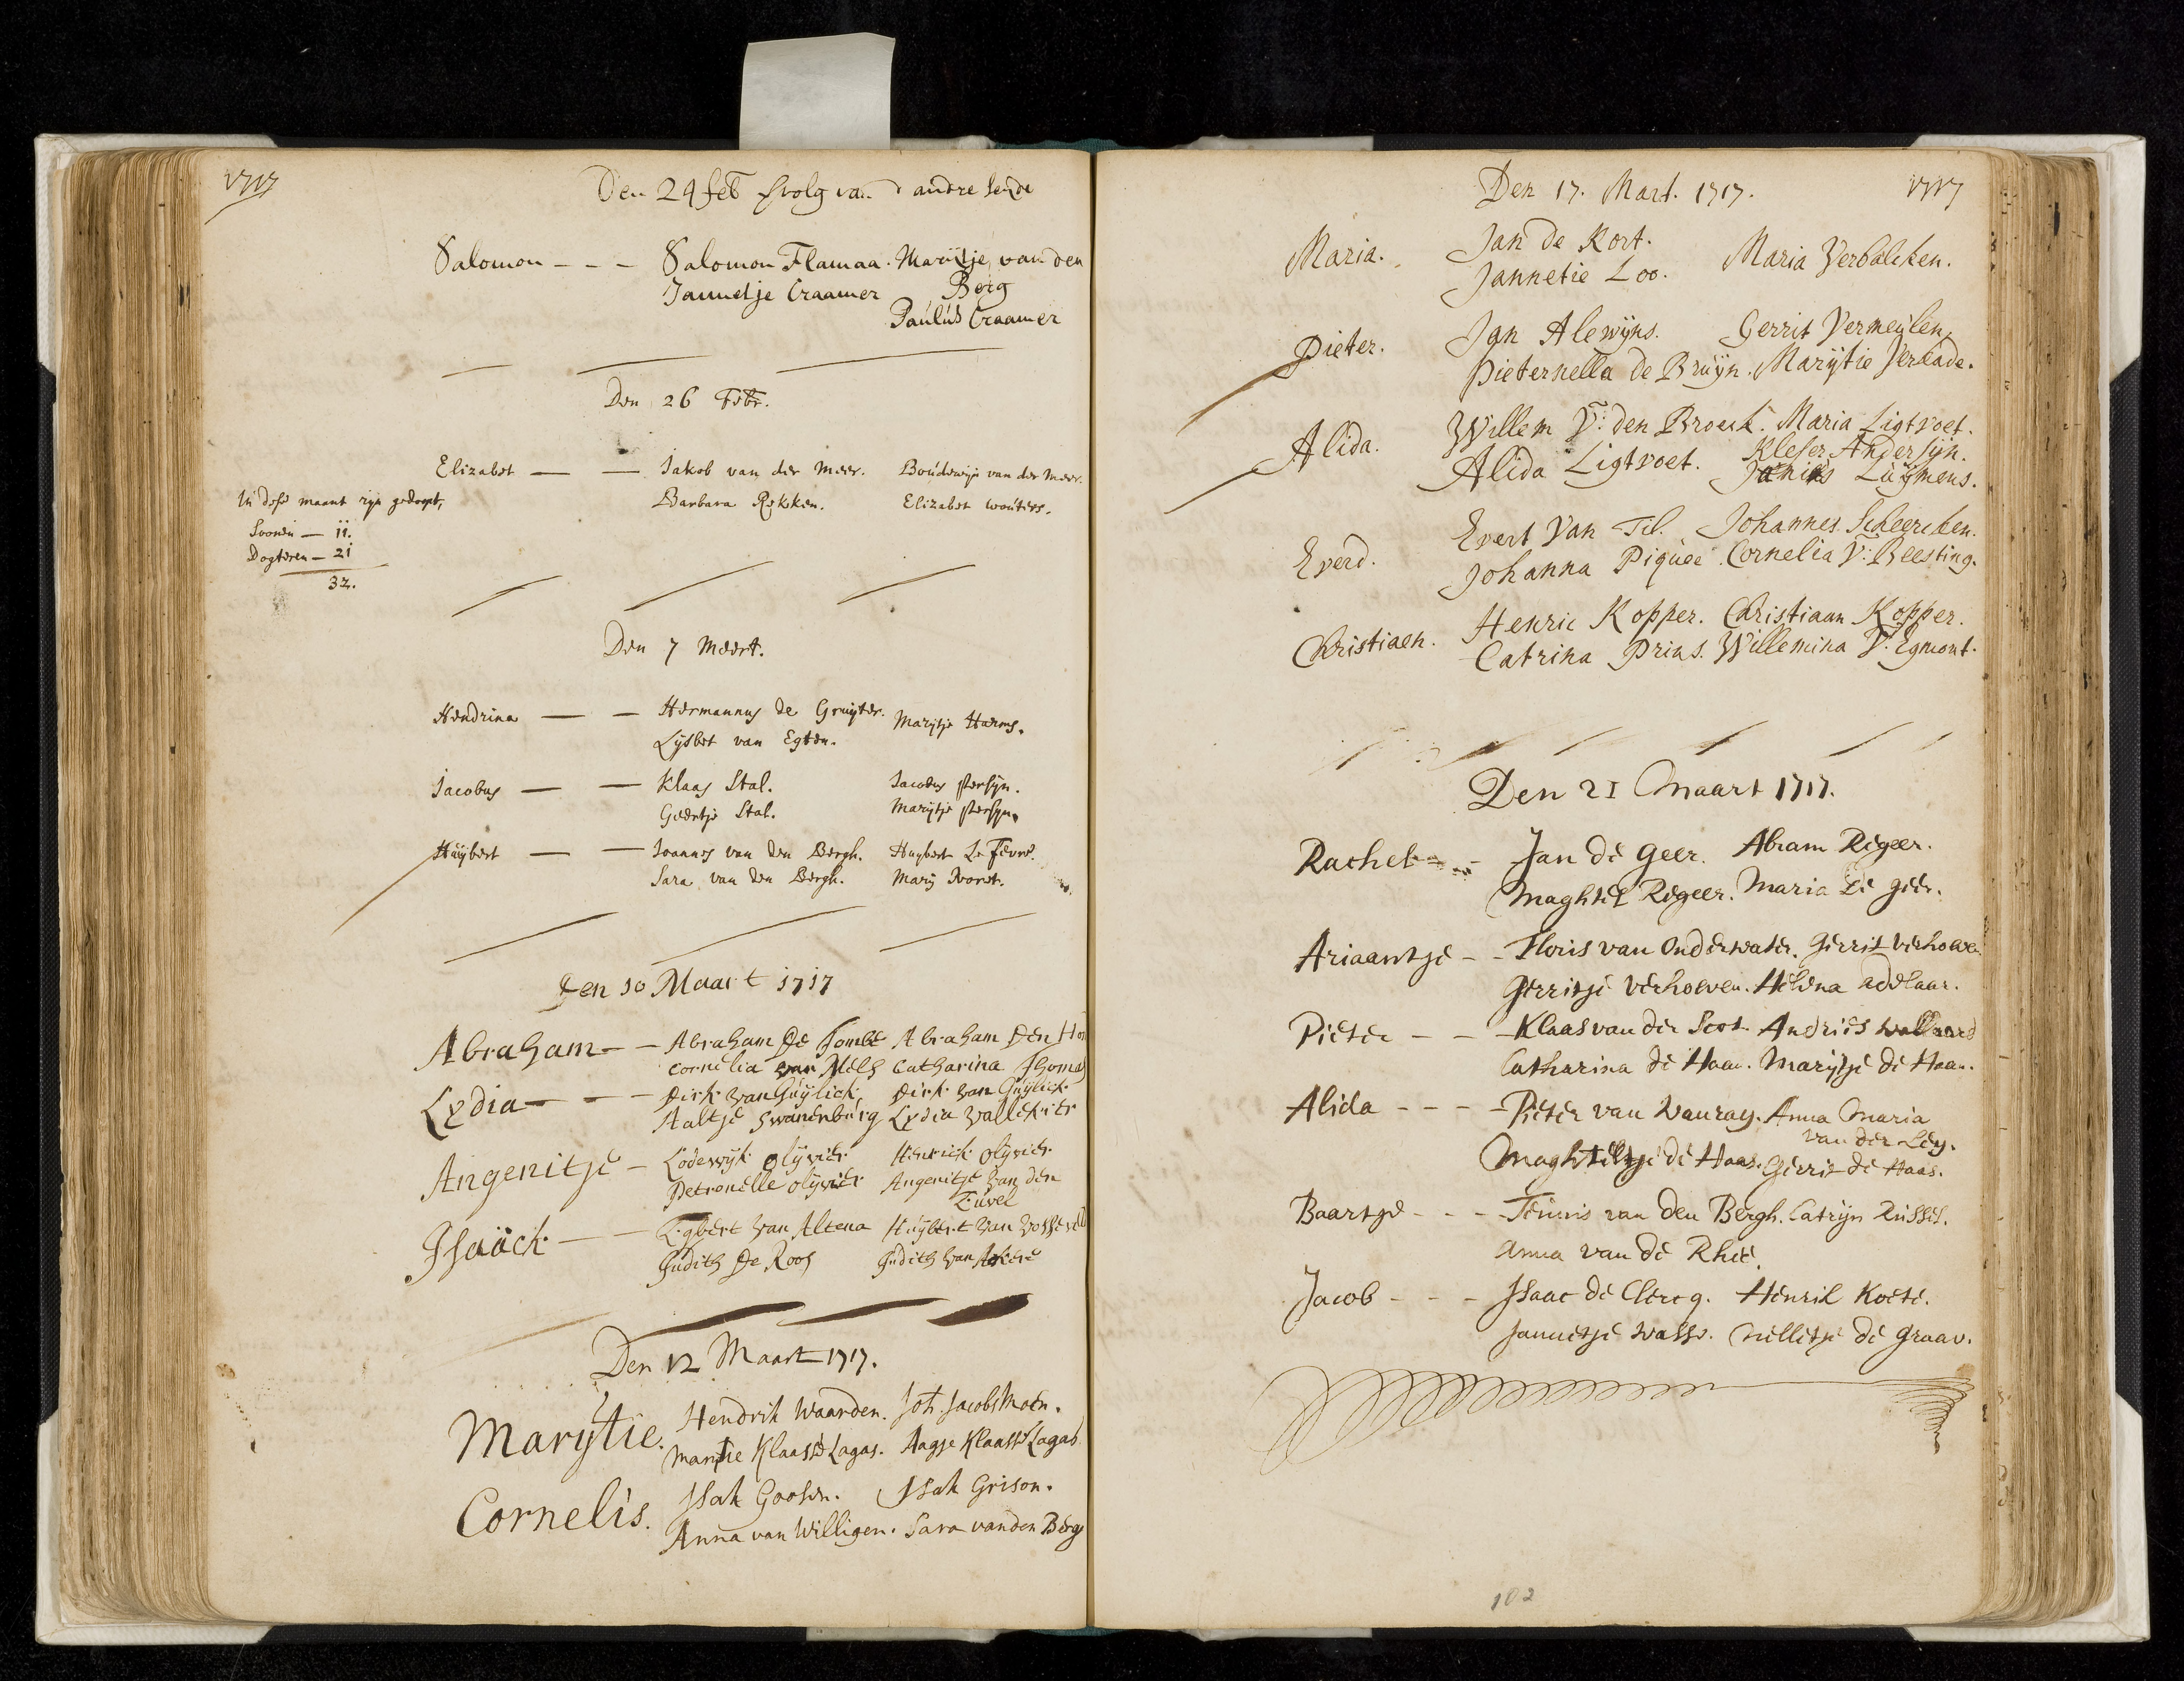 1717
Den 24 feb vvolg van d andre seyde
Salomon - - - Salomon Flamaa. Marytje van den
Jannetje Craamer Berg
Paulus Craamer
Den 26 Febr.
Elizabet — — Jakob van der Meer. Boudewijn van der Meer.
Barbara Rykken. Elizabet wouters.
In dese maant zijn gedoopt,
Soonen — 11.
Dogteren — 21
32.
Den 7 Meert.
Hendrina — — Hermannus de Gruyter. Marytje Harms.
Lijsbet van Egten.
Jacobus — — Klaas Stal. Jacobus persyn.
Geertje Stal. Marytje persyn.
Huijbert — — Joannes van den Bergh. Huybert Le Fevre.
Sara van den Bergh. Mary
Den 10 Maart 1717
Abraham - - Abraham De Tombe Abraham Den
Cornelia van Mels Catharina
Lydia - - - Dirk van Guÿlick Dirk van Guÿlick
Aaltje Swanenburg Lydia Vallekier
Angenitje - Lodewyk olyvier Henrick Olyvier
Petronelle olyvier Angenitje van den
Euvel
Isaäck - - Egbert van Altena Huÿbert van
Judith De Roos Judith van
Den 12 Maart 1717.
Marytie. Hendrik Waarden. Joh. Jacobs Moen.
Martie Klaasse Lagas. Aagje Klaasse Lagas
Cornelis. Isak Goosen. Isak Grison.
Anna van Willigen. Sara van den Berg
Den 17. Mart. 1717. 1717
Maria. Jan de Kort. Maria Verbalcken.
Jannetie Loo.
Pieter. Jan Alewÿns. Gerrit Vermeÿlen,
Pieternella de Bruÿn. Marÿtie Verkade.
Alida. Willem V: den Broeck. Maria Ligtvoet.
Alida Ligtvoet. Andersÿn.
Luÿmens.
Everd. Evert Van Til. Johannes Scheercken.
Johanna Piquee. Cornelia V: Beesting.
Christiaen. Henric Kopper. Christiaan Kopper.
Catrina Prins. Willemina V. Egmont.
Den 21 Maart 1717.
Rachel - - Jan de Geer. Abram Regeer.
Maghtel Regeer. Maria de geer.
Ariaantje - - Floris van Onderwater. Gerrit verhoeve
Gerritje verhoeven. Helena adelaar.
Pieter - - - Klaas van der Scot. Andries
Catharina de Haan. Marijtje de Haan.
Alida - - - - Pieter van Wanray. Anna Maria
van der Ley.
Maghteltje de Haas. Gerrit de Haas.
Baartje - - - Teunis van den Bergh. Catrijn Russel.
Anna van de Rheé.
Jacob - - - Isaac de Clercq. Henrik Koete.
Jannetje Wasse. Nelletje de Graav.
102